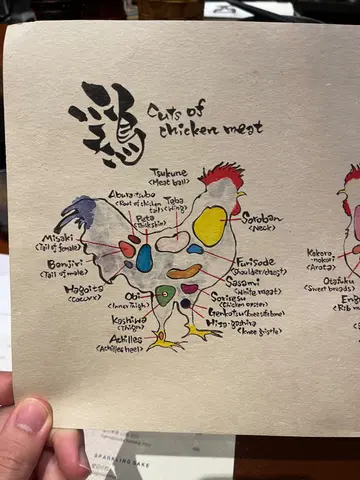 鶏
Cuts of
chicken meat
Tsukune
<Meat ball>
Abura-tsubo
<Root of chicken
tail>
Taba
<Wing>
Peta
<Thick skin>
Soroban
<Neck>
Misaki
<Tail of female>
Banjiri
<Tail of male>
Hagoita
<Coccyx>
Furisode
<Shoulder/chest>
Sasami
<White meat>
Obi
<Inner thigh>
Sorisesu
<Chicken oyster>
Kashiwa
<Thigh>
Genkotsu
<Knee softbone>
Hiza-gashira
<Knee gristle>
Achilles
<Achilles heel>
Kokoro
-nokori
<Arota>
Otafuku
<Sweet breads>
SPARKLING SAKE